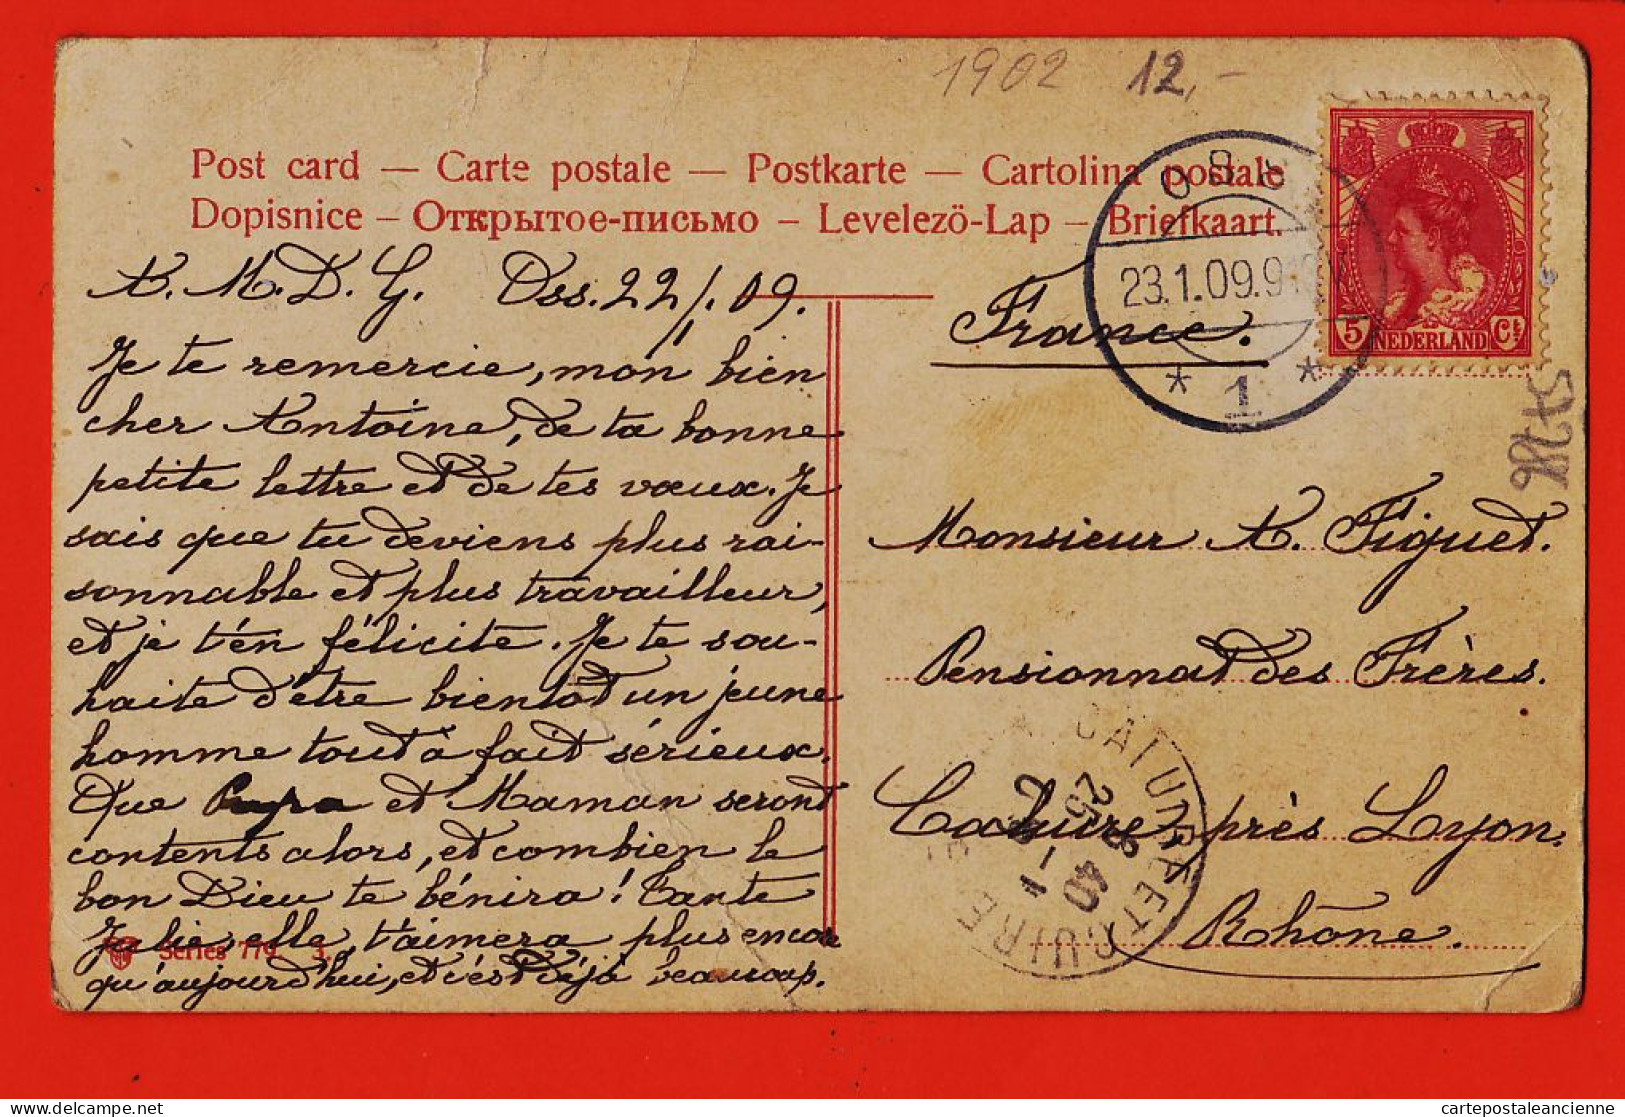 1902 12,-
Post card — Carte postale — Postkarte — Cartolina postale
Dopisnice — Открытое-письмо — Levelezö-Lap — Briefkaart.
OSS
23.1.09.9
* 1 *
5 NEDERLAND Ct
A. M. D. G. Oss. 22/1. 09.
Je te remercie, mon bien
cher Antoine, de ta bonne
petite lettre et de tes vœux. Je
sais que tu deviens plus rai-
sonnable et plus travailleur,
et je t'en félicite. Je te sou-
haite d'être bientôt un jeune
homme tout à fait sérieux.
Que Papa et Maman seront
contents alors, et combien le
bon Dieu te bénira! Tante
elle, t'aimera plus encore
qu'aujourd'hui, et c'est déjà beaucoup.
Series 779 3.
France.
Monsieur A. Figuet.
Pensionnat des Frères.
Caluire, près Lyon.
Rhône.
CALUIRE ET CUIRE
25 -1
cartepostaleancienne
delcampe.net
cartepostaleancienne